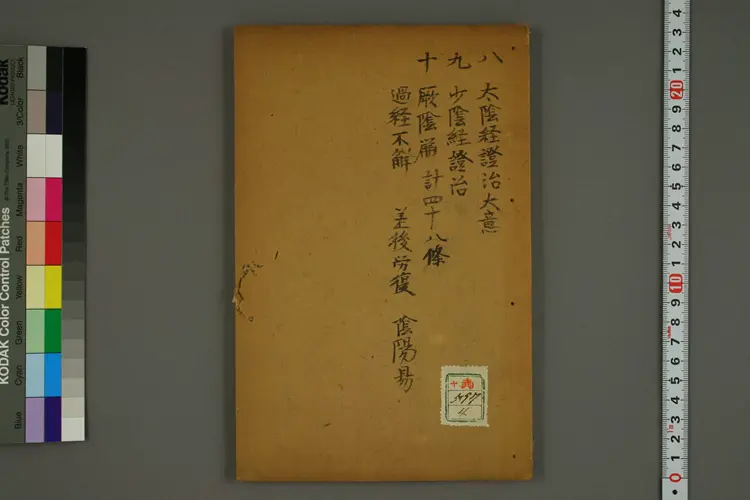 八 太陰経證治大意
九 少陰経證治
十 厥陰篇 計四十八條
過経不解 差後労復 陰陽易
Kodak
KODAK Color Control Patches
Blue Cyan Green Yellow Red Magenta White 3/Color Black
4 3 2 1 20 9 8 7 6 5 4 3 2 1 10 9 8 7 6 5 4 3 2 1 0